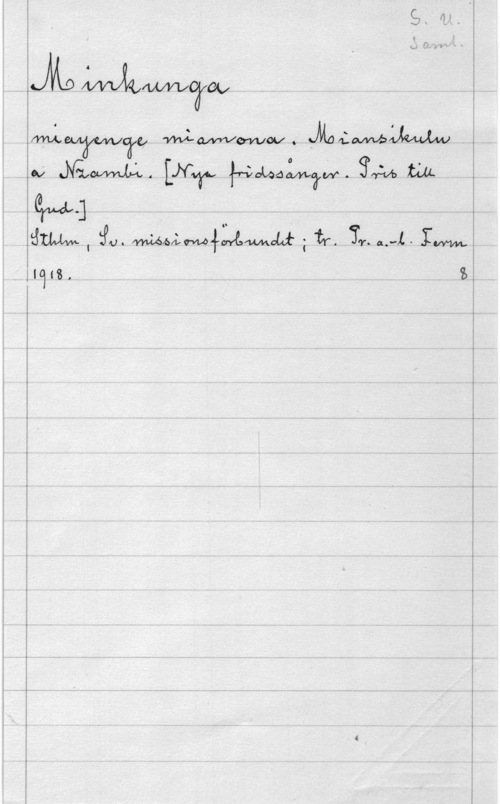 S. U.
Saml.
Minkunga
miayenge miamona. Miansikulu
a Nzambi. [Nya fridssånger. Pris till
Gud.]
Sthlm, Sv. missionsförbundet; tr. Tr. a.-b. Ferm
1918. 8